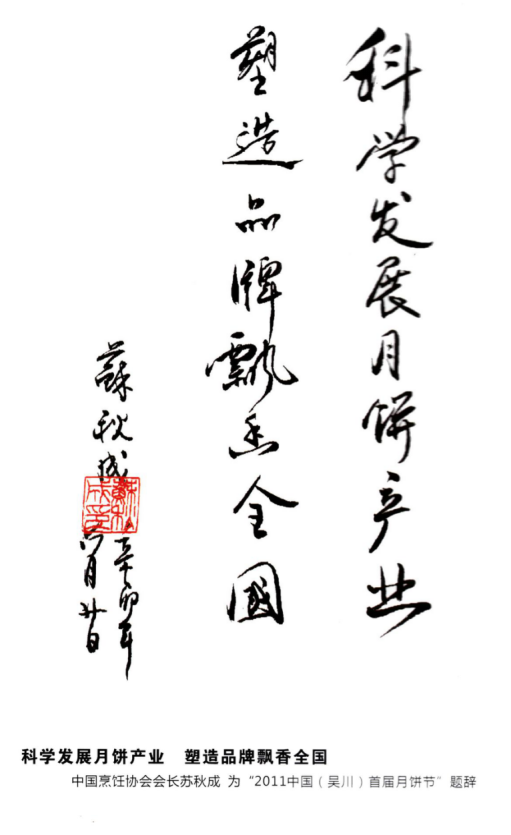 科学发展月饼产业
塑造品牌飘香全國
蘇秋成
辛卯年
八月廿日
科学发展月饼产业 塑造品牌飘香全国
中国烹饪协会会长苏秋成 为“2011中国（吴川）首届月饼节”题辞